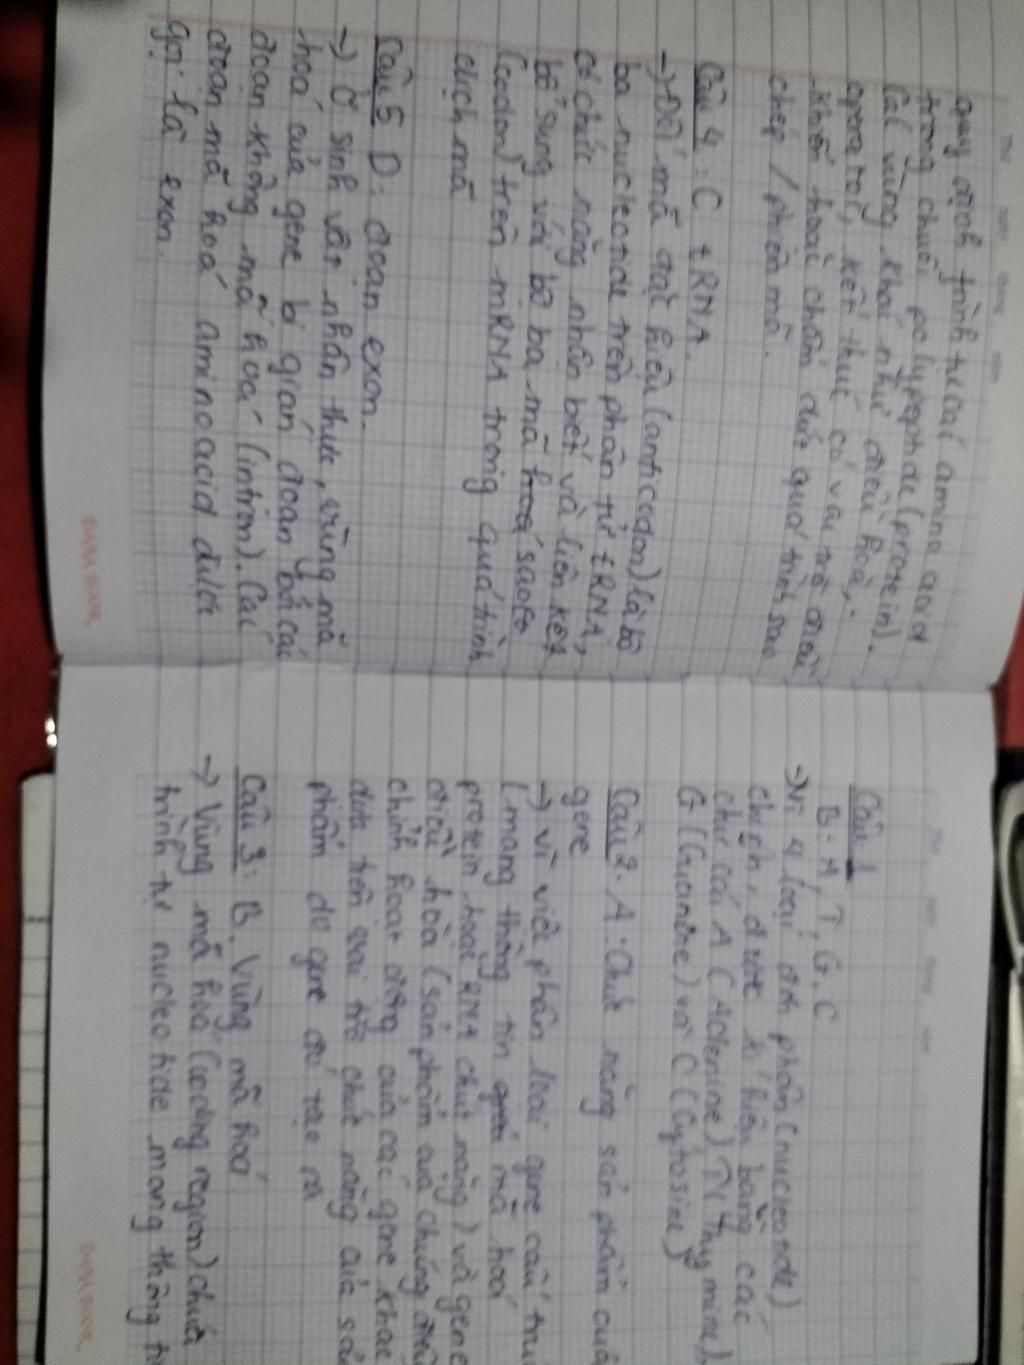 quy định trình tự các amino acid
trong chuỗi polypeptide (protein).
Các vùng khác như điều hoà,
operator, kết thúc có vai trò điều
khiển hoặc chấm dứt quá trình sao
chép / phiên mã.
Câu 4: C tRNA.
→ Đối mã đặc hiệu (anticodon) là bộ
ba nucleotide trên phân tử tRNA,
có chức năng nhận biết và liên kết
bổ sung với bộ ba mã hoá sao
(codon) trên mRNA trong quá trình
dịch mã
Câu 5 D: đoạn exon.
→ Ở sinh vật nhân thực, vùng mã
hoá của gene bị gián đoạn bởi các
đoạn không mã hoá (intron). Các
đoạn mã hoá aminoacid được
gọi là exon.
Câu 1
B: A, T, G, C
→ Vì 4 loại đơn phân (nucleotide)
chính, được kí hiệu bằng các
chữ cái A (Adenine), T (Thymine),
G (Guanine) và C (Cytosine)
Câu 2. A: Chức năng sản phẩm của
gene
→ vì việc phân loại gene cấu trúc
(mang thông tin mã hoá
protein hoặc RNA chức năng) và gene
điều hòa (sản phẩm của chúng điều
chỉnh hoạt động của các gene khác
dựa trên vai trò chức năng của sản
phẩm do gene đó tạo ra
Câu 3: B. Vùng mã hoá
→ Vùng mã hoá (coding region) chứa
trình tự nucleotide mang thông